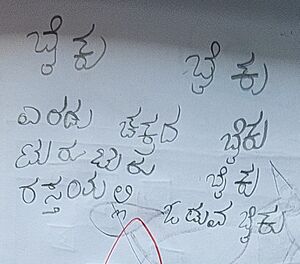 ಬೈಕು ಬೈಕು
ಎರಡು ಚಕ್ರದ ಬೈಕು
ಟುರು ಟುರು ಬೈಕು
ರಸ್ತಯಲ್ಲಿ ಓಡುವ ಬೈಕು